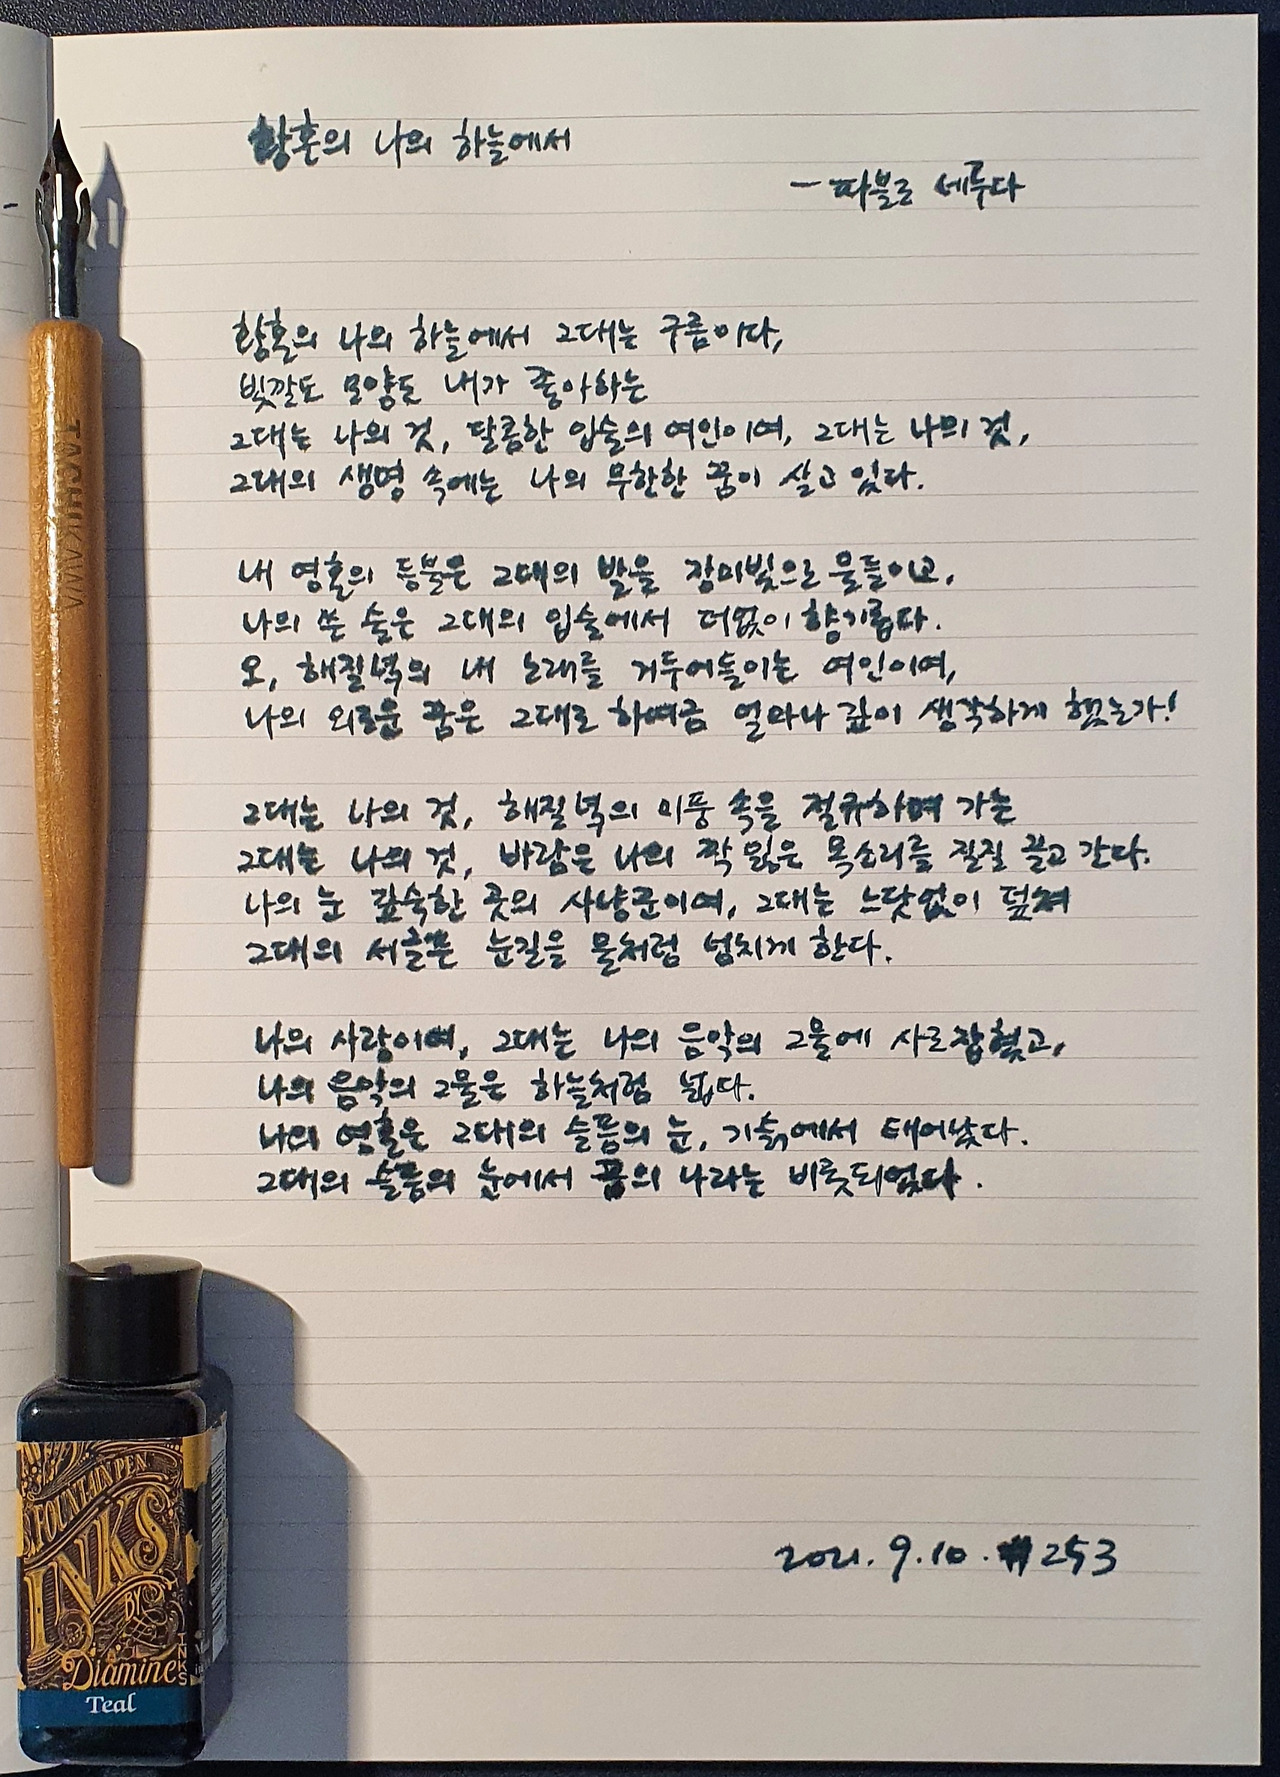 황혼의 나의 하늘에서
- 파블로 네루다
황혼의 나의 하늘에서 그대는 구름이다,
빛깔도 모양도 내가 좋아하는
그대는 나의 것, 달콤한 입술의 여인이여, 그대는 나의 것,
그대의 생명 속에는 나의 무한한 꿈이 살고 있다.
내 영혼의 등불은 그대의 발을 장미빛으로 물들이고,
나의 쓴 술은 그대의 입술에서 더없이 향기롭다.
오, 해질녘의 내 노래를 거두어들이는 여인이여,
나의 외로운 꿈은 그대로 하여금 얼마나 깊이 생각하게 했는가!
그대는 나의 것, 해질녘의 미풍 속을 절규하며 가는
그대는 나의 것, 바람은 나의 짝 잃은 목소리를 질질 끌고 간다.
나의 눈 깊숙한 곳의 사냥꾼이여, 그대는 느닷없이 덮쳐
그대의 서글픈 눈길을 물처럼 넘치게 한다.
나의 사랑이여, 그대는 나의 음악의 그물에 사로잡혔고,
나의 음악의 그물은 하늘처럼 넓다.
나의 영혼은 그대의 슬픔의 눈, 기슭에서 태어났다.
그대의 슬픔의 눈에서 꿈의 나라는 비롯되었다.
2021. 9. 10. #253
TACHIKAWA
FOUNTAIN PEN
INKS
BY
Diamine
INKS
Teal